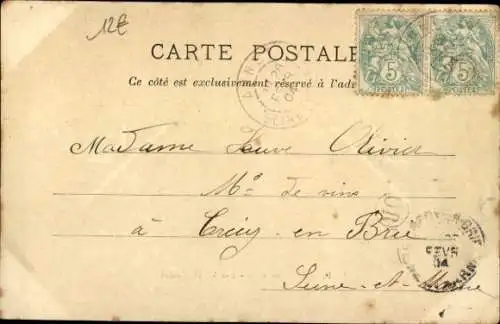 12€
CARTE POSTALE
Ce côté est exclusivement réservé à l'adr
5 5
POSTES POSTES
SEINE
Madame Veuve Olivier
Mde de vins
à Crécy en Brie
FEVR
04
Seine-et-Marne